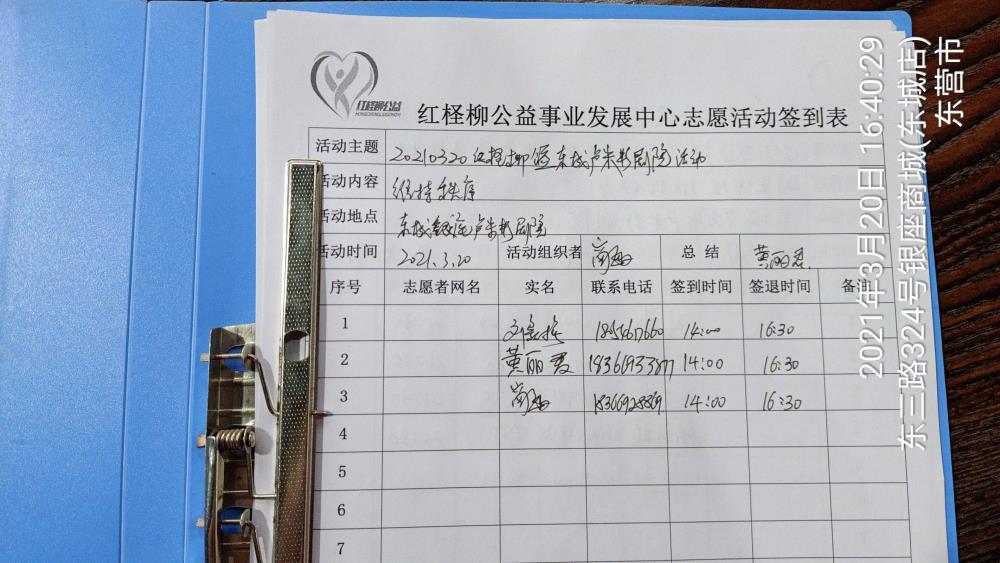 红柽柳公益
红柽柳公益事业发展中心志愿活动签到表
活动主题 20210320红柽柳 东城卢米影剧院活动
活动内容 维持秩序
活动地点 东城银座卢米影剧院
活动时间 2021.3.20 活动组织者 总 结 黄丽君
序号 志愿者网名 实名 联系电话 签到时间 签退时间 备注
1 14:00 16:30
2 黄丽君 18366933877 14:00 16:30
3 18366928869 14:00 16:30
4
5
6
7
2021年3月20日 16:40:29
东三路324号银座商城(东城店)
东营市